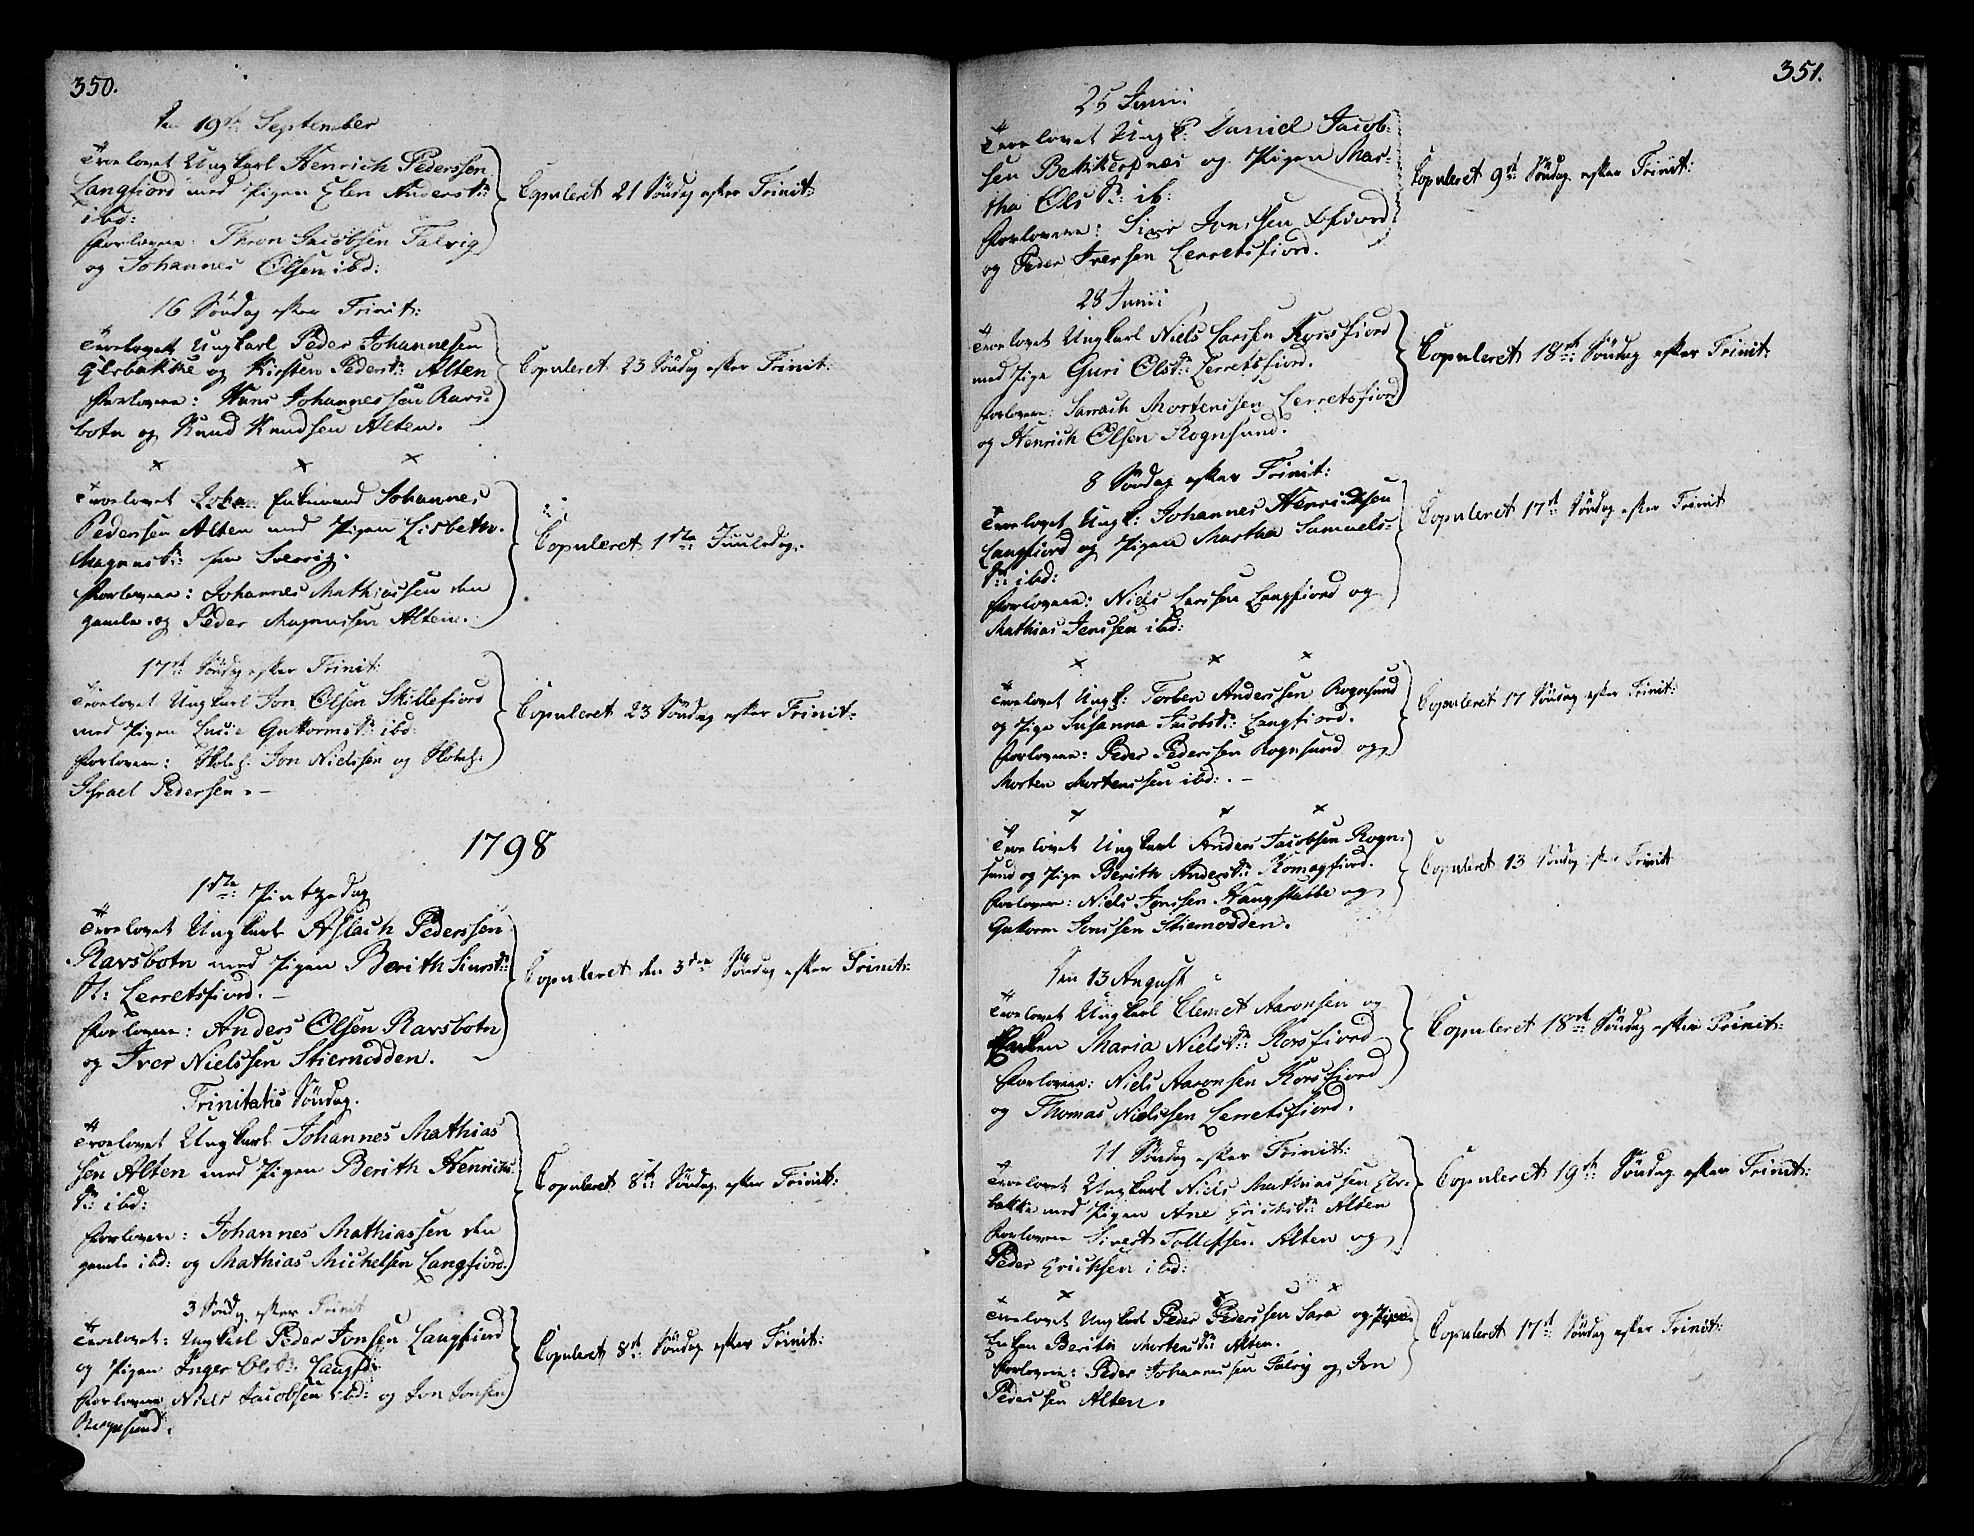 350.
den 19de: September
Trolovet Ungkarl Henrich Pederssen
Langfiord med Pigen Elen Andersd:
ibd:
Forlovere: Thron Jacobsen Talvig
og Johannes Olsen ibd:
Copuleret 21 Søndag efter Trinit:
16 Søndag efter Trinit:
Trolovet Ungkarl Peder Johannesen
Elvbakke og Kirsten Pedersd: Alten
Forlovere: Hans Johannessen Ravs-
botn og Knud Knudsen Alten.
Copuleret 23 Søndag efter Trinit:
Trolovet Enkemand Johannes
Pedersen Alten med Pigen Lisbeth
Magnusd:
Forlovere: Johannes Mathiassen den
gamle og Peder Magnussen Alten.
Copuleret 1ste Juuledag.
17de: Søndag efter Trinit:
Trolovet Ungkarl Jon Olsen Skillefiord
med Pigen Lucie Guttormsd: ibd:
Forlovere: Jon Nielssen og
Israel Pedersen.-
Copuleret 23 Søndag efter Trinit:
1798
1ste: Pintzedag
Trolovet Ungkarl Aslach Pederssen
Ravsbotn med Pigen Berith
Lerretsfiord.-
Forlovere: Anders Olsen Ravsbotn
og Iver Nielssen Stiernodden.
Copuleret den 3die Søndag efter Trinit:
Trinitatis Søndag.
Trolovet Ungkarl Johannes Mathias
sen Alten med Pigen Berith Henrichs
D: ibd:
Forlovere: Johannes Mathiassen den
gamle ibd: og Mathias Michelsen Langfiord.
Copuleret 8de: Søndag efter Trinit:
3 Søndag efter Trinit
Trolovet: Ungkarl Peder Jonsen Langfiord
og Pigen Inger Ols D: Langfd:
Forlovere Niels Jacobsen ibd: og Jon Jonsen
Rognsund.
Copuleret 8de: Søndag efter Trinit:
351.
25 Junii
Trolovet Ungk: Daniel Jacob-
sen og Pigen Mar-
tha Ols D: ib:
Forlovere: Siver Jonssen
og Peder Iversen Lerretsfiord.
Copuleret 9de: Søndag efter Trinit:
28 Junii
Trolovet Ungkarl Niels Larssen Korsfiord
med Pige Guri Olsd: Lerretsfiord.
Forlovere: Sarrach Mortenssen Lerretsfiord
og Henrich Olsen Rognsund.
Copuleret 18de: Søndag efter Trinit:
8 Søndag efter Trinit:
Trolovet Ungk: Johannes Henrichsen
Langfiord og Pigen Martha Samuels-
D: ibd:
Forlovere: Niels Larssen Langfiord og
Mathias Jenssen ibd:
Copuleret 17de: Søndag efter Trinit
Trolovet Ungk: Torben Anderssen Rognsund
og Pige Susanna Jacobsd: Langfiord.
Forlovere: Peder Pederssen Rognsund og
Morten Mortenssen ibd: -
Copuleret 17 Søndag efter Trinit:
Trolovet Ungkarl Anders Jacobsen Rogn-
sund og Pige Berith Andersd: Komagfiord.
Forlovere: Niels Jonssen Kongstubbe og
Guttorm Jonssen Stiernodden.
Copuleret 13 Søndag efter Trinit
Den 13 August
Trolovet Ungkarl Clemet Aaronsen og
Enken Maria Nielsd: Korsfiord
Forlovere: Niels Aaronsen Korsfiord
og Thomas Nielssen Lerretsfiord.
Copuleret 18de: Søndag efter Trinit:
11 Søndag efter Trinit:
Trolovet Ungkarl Niels Mathiassen Elv-
bakke med Pigen Ane Erichsd: Alten
Forlovere Sivert Tollefsen Alten og
Peder Erichsen ibd:
Copuleret 19de: Søndag efter Trinit:
Trolovet Ungkarl Peder Pederssen Sara og
Enken Beritha Mortensd: Alten.
Forlovere: Peder Johannessen Talvig og Jon
Pederssen Alten.
Copuleret 17de: Søndag efter Trinit: